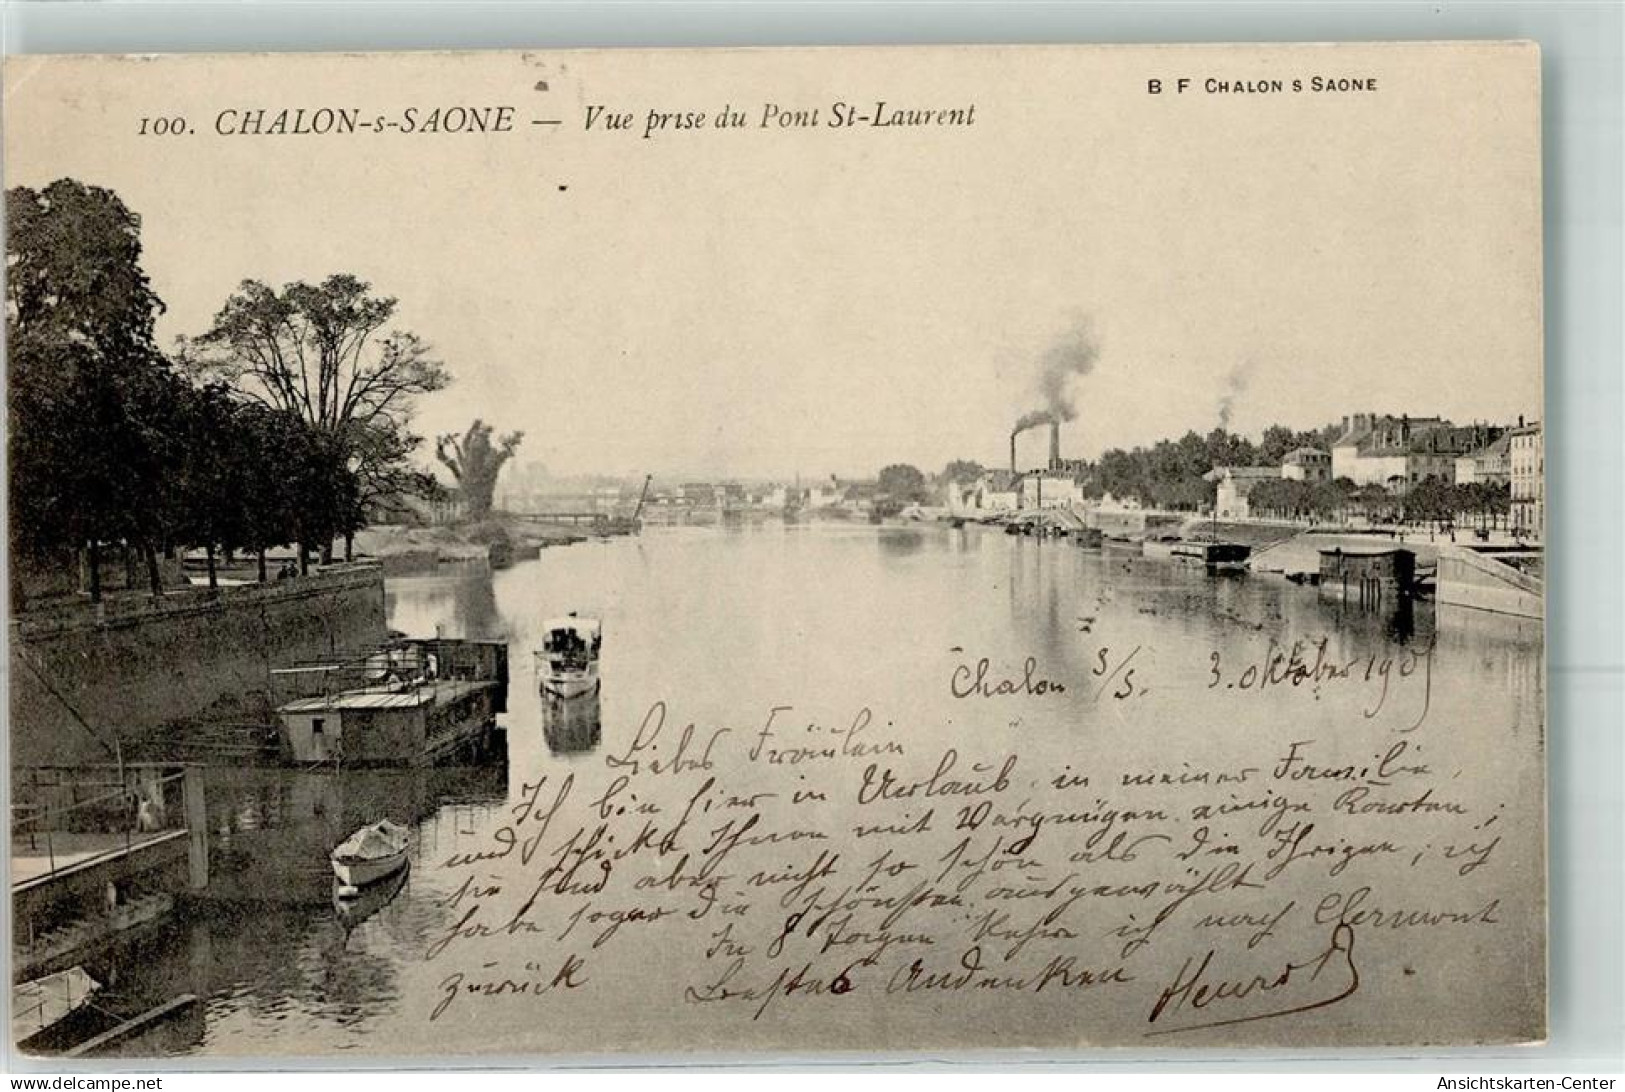 B F CHALON S SAONE
100. CHALON-s-SAONE — Vue prise du Pont St-Laurent
Chalon s/S. 3. Oktober 1905
Liebes Fräulein
Ich bin hier in Urlaub, in meiner Familie,
und schicke Ihnen mit Vergnügen einige Karten;
sie sind aber nicht so schön als die Ihrigen; ich
habe sogar die schönsten ausgewählt
In 8 Tagen kehre ich nach Clermont
zurück
Bestes Andenken Henri B
delcampe.net
Ansichtskarten-Center